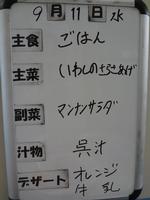 9月11日水
主食 ごはん
主菜 いわしのさらさあげ
副菜 マンナンサラダ
汁物 呉汁
デザート オレンジ
牛乳